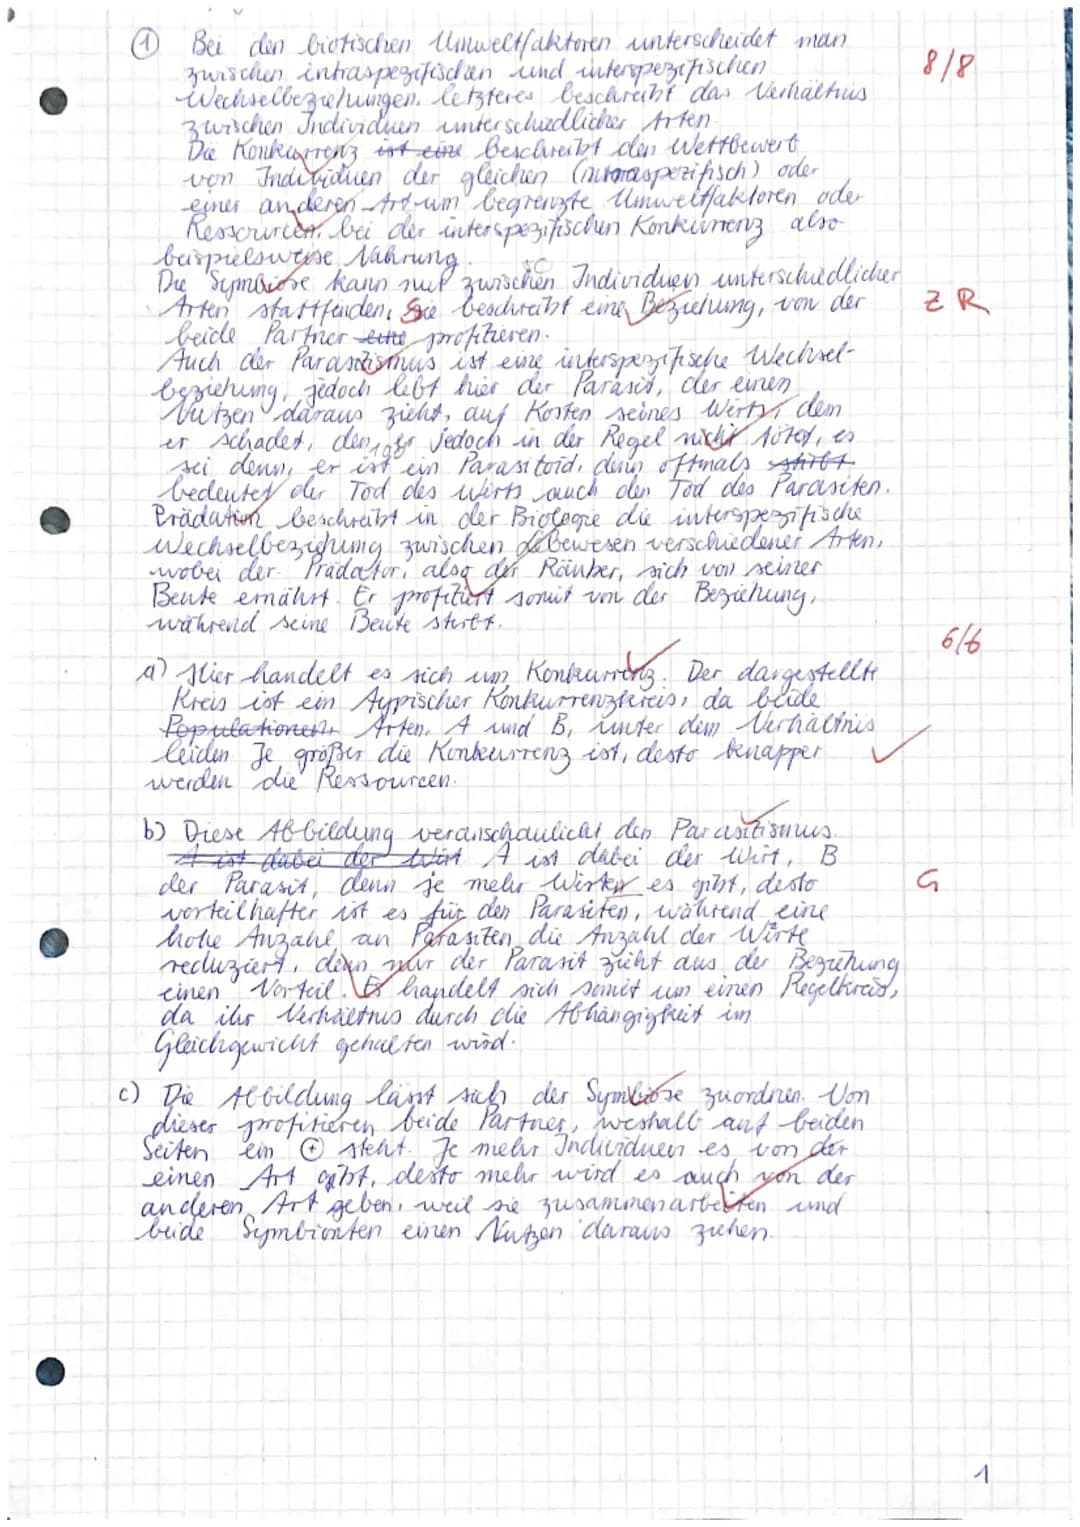 ① Bei den biotischen Umweltfaktoren unterscheidet man
zwischen intraspezifischen und interspezifischen
Wechselbeziehungen, letzteres beschreibt das Verhältnis
zwischen Individuen unterschiedlicher Arten.
8/8
Die Konkurrenz ist eine beschreibt den Wettbewerb
von Individuen der gleichen (intraspezifisch) oder
einer anderen Art um begrenzte Umweltfaktoren oder
Ressourcen, bei der interspezifischen Konkurrenz also
beispielsweise Nahrung.
Die Symbiose kann nur zwischen Individuen unterschiedlicher
Arten stattfinden. Sie beschreibt eine Beziehung, von der
Z R
beide Partner eine profitieren.
Auch der Parasitismus ist eine interspezifische Wechsel-
beziehung, jedoch lebt hier der Parasit, der einen
Nutzen daraus zieht, auf Kosten seines Wirts, dem
er schadet, den er jedoch in der Regel nicht tötet, es
sei denn, er ist ein Parasitoid, denn oftmals stirbt
bedeutet der Tod des Wirts auch den Tod des Parasiten.
Prädation beschreibt in der Biologie die interspezifische
Wechselbeziehung zwischen Lebewesen verschiedener Arten,
wobei der Prädator, also der Räuber, sich von seiner
Beute ernährt. Er profitiert somit von der Beziehung,
während seine Beute stirbt.
6/6
a) Hier handelt es sich um Konkurrenz. Der dargestellte
Kreis ist ein typischer Konkurrenzkreis, da beide
Populationen Arten, A und B, unter dem Verhältnis
leiden. Je größer die Konkurrenz ist, desto knapper
werden die Ressourcen.
b) Diese Abbildung veranschaulicht den Parasitismus.
A ist dabei der Wirt A ist dabei der Wirt, B
der Parasit, denn je mehr Wirten es gibt, desto
G
vorteilhafter ist es für den Parasiten, während eine
hohe Anzahl an Parasiten die Anzahl der Wirte
reduziert, denn nur der Parasit zieht aus der Beziehung
einen Vorteil. Es handelt sich somit um einen Regelkreis,
da ihr Verhältnis durch die Abhängigkeit im
Gleichgewicht gehalten wird.
c) Die Abbildung lässt sich der Symbiose zuordnen. Von
dieser profitieren beide Partner, weshalb auf beiden
Seiten ein ⊕ steht. Je mehr Individuen es von der
einen Art gibt, desto mehr wird es auch von der
anderen Art geben, weil sie zusammenarbeiten und
beide Symbionten einen Nutzen daraus ziehen.
1